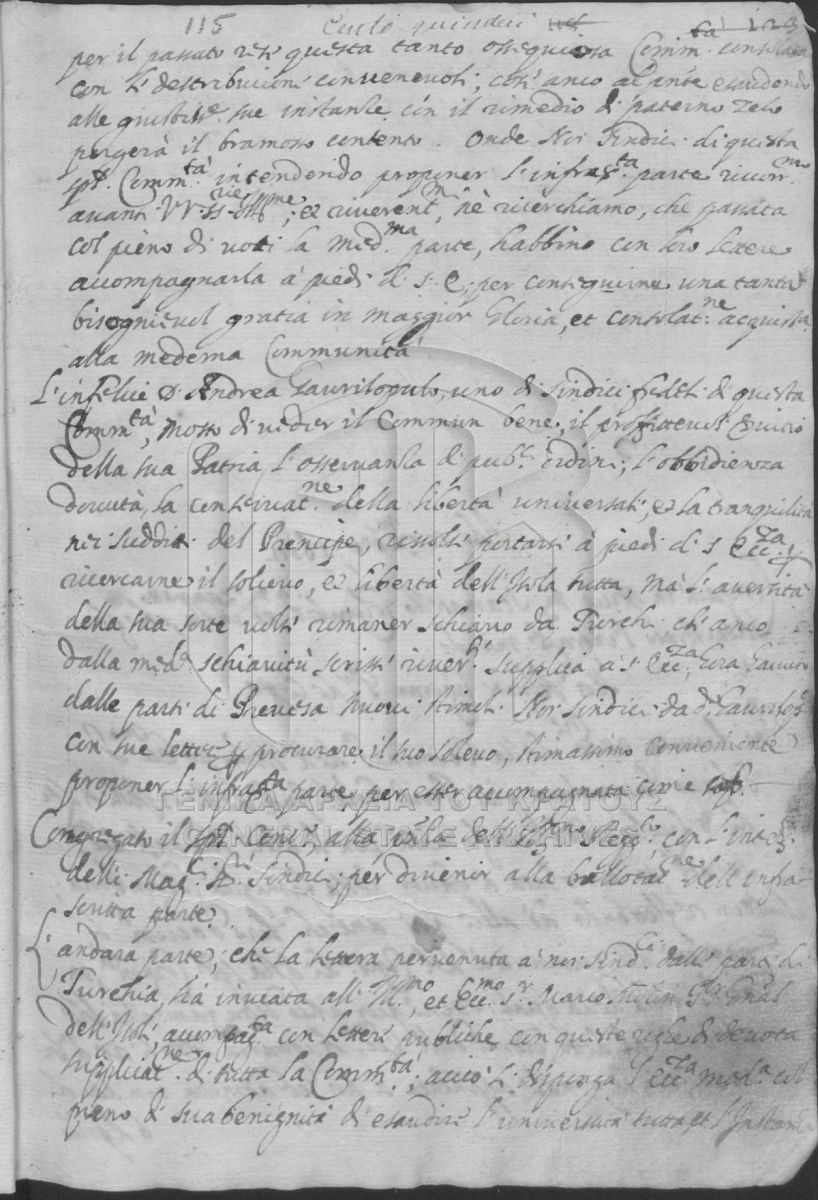 115 Cento quindeci 123
per il passato rese questa tanto ossequiosa Comm.tà consolata
con le destribucioni convenevoli; così anco al pnte esaudendo
alle giustiss.e sue instanze, con il rimedio di paterno zelo
porgerà il bramoso contento. Onde Noi Sindici di questa
Sp. Comm.tà intendendo proponer l'infras.ta parte ricorr.mo
avanti VV SS. Ill.me; et riverent.m, nè ricerchiamo, che passata
col pieno di voti la med.ma parte, habbino con loro lettere
accompagnarla à piedi di S. E. per conseguirne una tanta
bisognievol gratia in maggior Gloria, et consolat.ne acquista
alla medema Communità
L'infelice S.r Andrea Gavrilopulo, uno di Sindici fedeli di questa
Comm.tà, mosso di veder il Commun bene, il profitevol servicio
della sua Patria l'osservanza di pub.ci ordini, l'obbidienza
dovuta, la conservat.ne della libertà universale, et la tranquilità
nei sudditi del Prencipe, risolse portarsi à piedi di S. Ecc.za p
ricercarne il solievo, et libertà dell'Isola tutta, mà l'aversità
della sua sorte volse rimaner schiavo da Turchi che anco
dalla med.a schiavitù scrisse river.te supplica a S. Ecc.za hora
dalle parti di Prevesa Noi Sindici da d.o
con sue lettere p procurare il suo solevo, stimassimo conveniente
proponer l'infras.ta parte per esser accompagnata come
Congregato il Sp. Cons.o alla pnza dell' Regg.to, con l'inter.to
delli Mag.ci S.ri Sindici; per divenir alla ballotat.ne dell'infra-
scritta parte.
andarà parte, che la lettera pervenuta à noi Sind.ci dalle parti di
Turchia, sia inviata all'Ill.mo, et Ecc.mo S.r Marco Gnal
dell'Isole accompag.ta con lettere publiche, con queste righe di devota
supplicat.ne di tutta la Comm.tà; acciò si disponga S. Ecc.za med.a col
pieno di sua benignità di esaudire l'università tutta, et l'Instanza